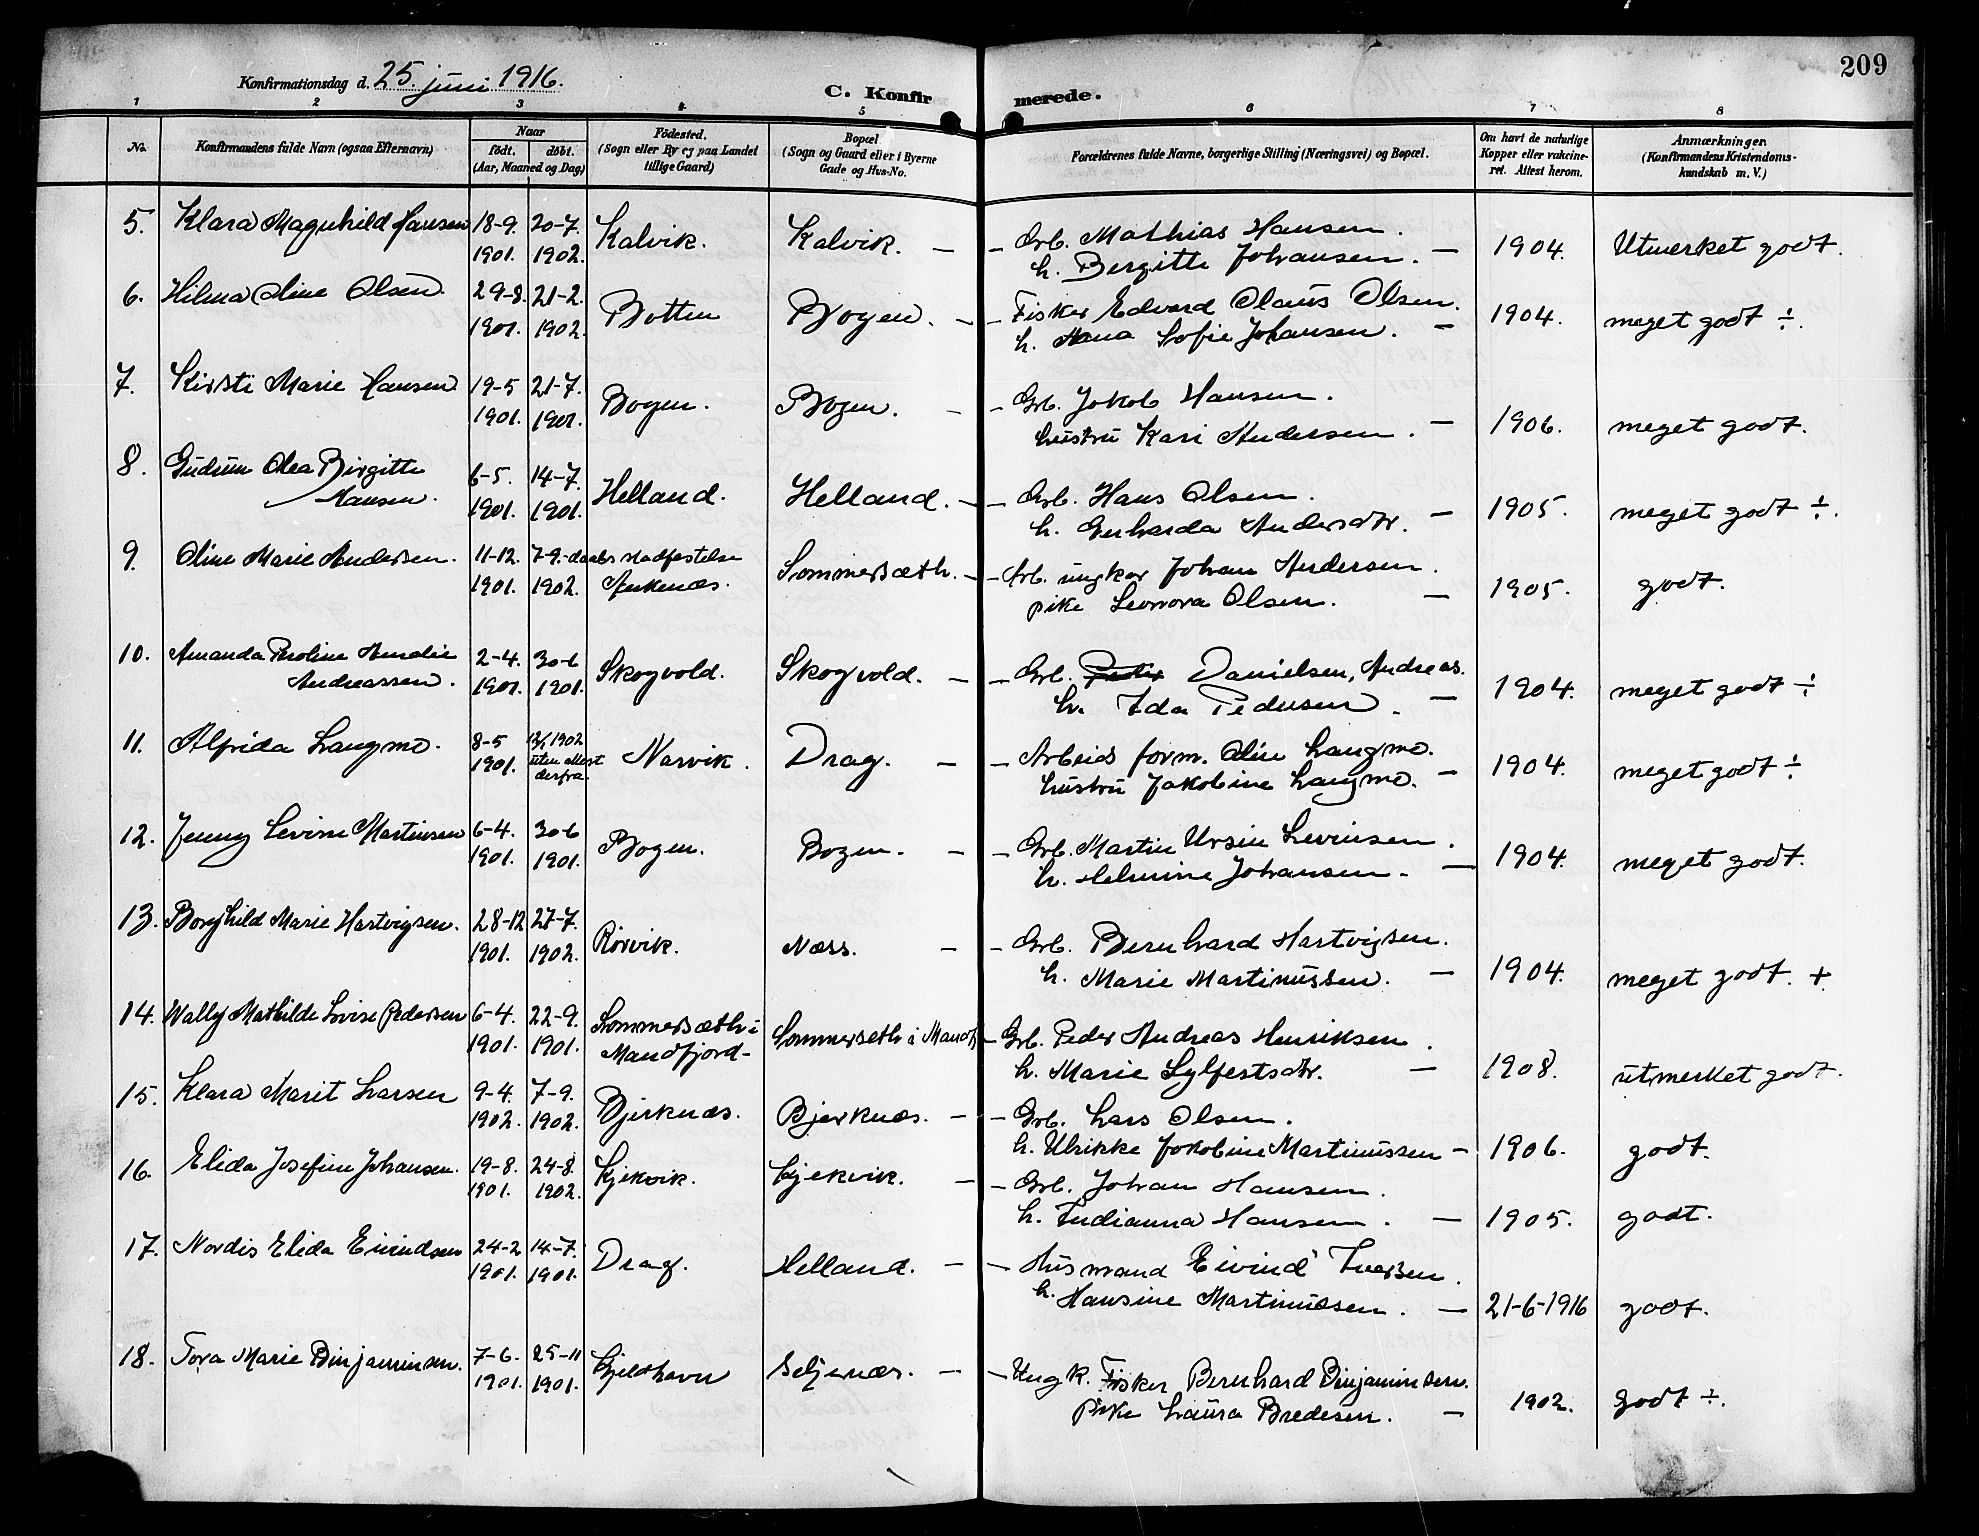 209
Konfirmationsdag d. 25. juni 1916.
C. Konfirmerede.
1 2 3 4 5 6 7 8
No. Konfirmandens fulde Navn (ogsaa Efternavn) Naar født. døbt. (Aar, Maaned og Dag) Fødested. (Sogn eller By og paa Landet tillige Gaard) Bopæl (Sogn og Gaard eller i Byerne Gade og Hus-No. Forældrenes fulde Navne, borgerlige Stilling (Næringsvei) og Bopæl. Om havt de naturlige Kopper eller vakcineret. Attest herom. Anmærkninger. (Konfirmandens Kristendomskundskab m. V.)
5. Klara Magnhild Hansen 18-9. 20-7. Kalvik. Kalvik. — - Grb. Mathias Hansen.
1901. 1902. h. Bergitte Johansen. — 1904. Utmerket godt.
6. Hilma Oline Olsen. 29-8. 21-2. Botten Bogen. - - Fisker Edvard Olaus Olsen.
1901. 1902. h. Anna Sofie Johansen. — 1904. meget godt ÷.
7. Kirsti Marie Hansen 19-5 21-7. Bogen. Bogen. - - Grb. Jakob Hansen.
1901. 1901. hustru Kari Andersen. — 1906. meget godt.
8. Gudrun Olea Birgitte 6-5. 14-7. Helland. Helland. - - Grb. Hans Olsen.
Hansen. 1901. 1901. h. Gerharda Andersdtr. — 1905. meget godt ÷.
9. Oline Marie Andersen. 11-12. 7-9.-daabs stadfestelse Sommersæth. - - Arb. ungkar Johan Andersen.
1901. 1902. Ankenæs. pike Leonora Olsen. — 1905. godt.
10. Amanda Paroline Amalie 2-4. 30-6 Skogvold. Skogvold. - - Grb. Danielsen, Andreas.
Andreassen. 1901. 1901. h. Ida Pedersen. — 1904. meget godt ÷
11. Alfrida Langmo. 8-5 12/1 1902 Narvik. Drag. - - Arbeids form. Olin Langmo.
1901. uten attest derfra. hustru Jakobine Langmo. — 1904. meget godt ÷
12. Jenny Levine Martinsen 6-4. 30-6 Bogen. Bogen. - - Grb. Martin Ursin Levinsen.
1901. 1901. h. Helmine Johansen. — 1904. meget godt.
13. Borghild Marie Hartvigsen. 28-12 27-7. Rørvik. Næss. - - Grb. Bernhard Hartvigsen.
1901. 1902. h. Marie Martinussen. — 1904. meget godt. +
14. Wally Mathilde Lovise Pedersen 6-4. 22-9. Sommersæth i Sommerseth i Mandf — Grb. Peder Andreas Henriksen.
1901. 1901. Mandfjord- h. Marie Sylfestsdtr. — 1908. utmerket godt.
15. Klara Marit Larsen 9-4. 7-9. Bjerknæs. Bjerknæs. - - Grb. Lars Olsen.
1902. 1902. h. Ulrikke Jakobine Martinussen - 1906. godt.
16. Elida Josefine Johansen. 19-8. 24-8. Kjekvik. Kjekvik. - - Grb. Johan Hansen.
1901. 1902. h. Indianna Hansen. — 1905. godt.
17. Nordis Elida Eivindsen 24-2 14-7. Drag. Helland. - - Husmand Eivind Iversen.
1901. 1901. h. Hansine Martinussen. — 21-6-1916 godt.
18. Tora Marie Binjaminsen. 7-6. 25-11 Kjeldhavn Seljenæs. - - Ungk. Fisker Bernhard Binjaminsen.
1901. 1901. Pike Laura Bredesen. — 1902. godt ÷.